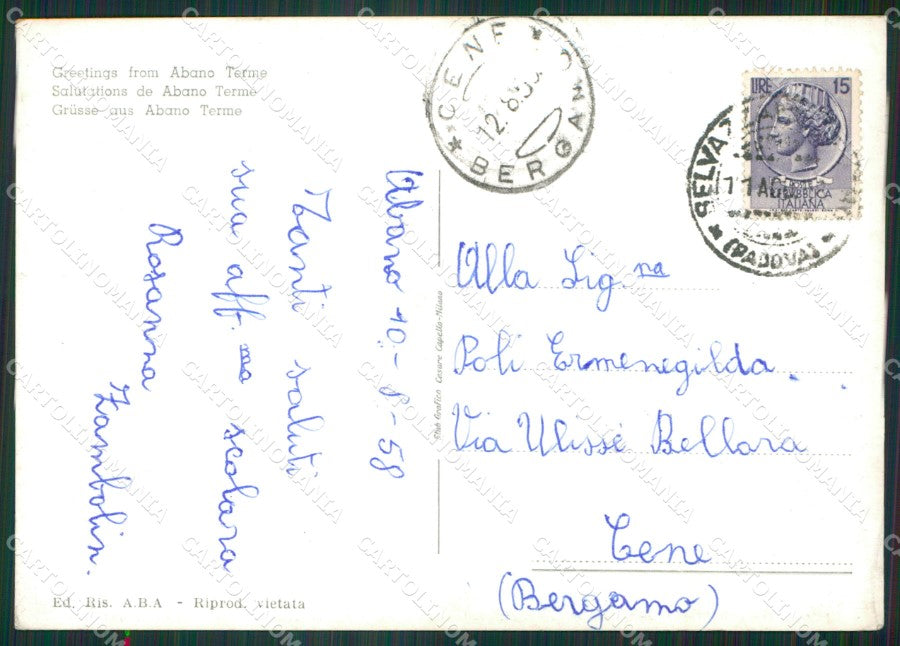 Greetings from Abano Terme
Salutations de Abano Terme
Grüsse aus Abano Terme
CENE
BERGAMO
12.8.58
LIRE 15
REPUBBLICA
ITALIANA
SELVA
11 AGO
(PADOVA)
Abano 10.-8-58
Tanti saluti
sua aff.ma scolara
Rosanna Zambolin.
Stab Grafico Cesare Capello-Milano
Alla Sig.na
Poli Ermenegilda.
Via Ulisse Bellora
Cene
(Bergamo)
Ed. Ris. A.B.A - Riprod. vietata
CARTOLINOMANIA